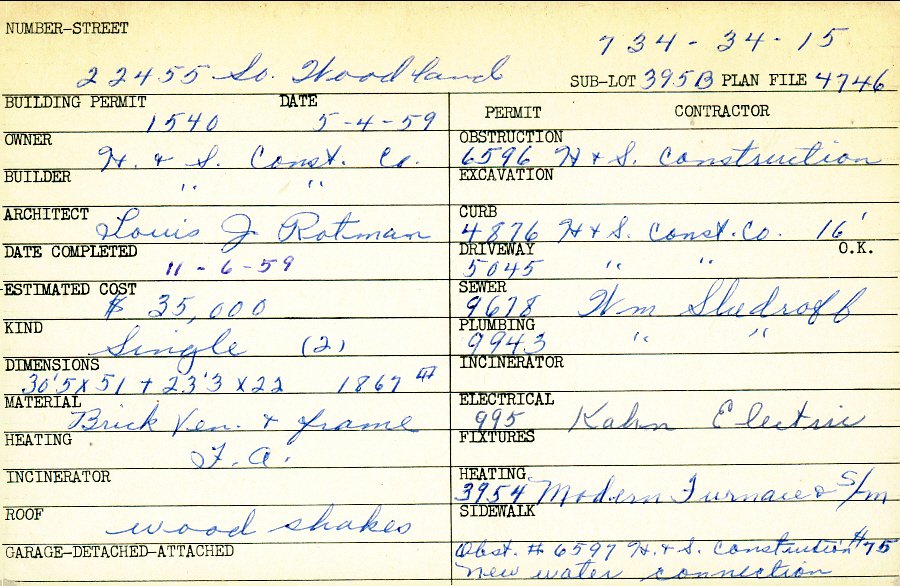 NUMBER-STREET
734-34-15
22455 So. Woodland
SUB-LOT 395B PLAN FILE 4746
BUILDING PERMIT DATE
1540 5-4-59
OWNER
H. & S. Const. Co.
BUILDER
" "
ARCHITECT
Louis J Rotman
DATE COMPLETED
11-6-59
ESTIMATED COST
$ 35,000
KIND
Single (2)
DIMENSIONS
30'5 x 51 + 23'3 x 22 1867
MATERIAL
Brick Ven. & frame
HEATING
F.A.
INCINERATOR
ROOF
wood shakes
GARAGE-DETACHED-ATTACHED
PERMIT CONTRACTOR
OBSTRUCTION
6596 H & S. Construction
EXCAVATION
CURB
4876 H & S. Const. Co. 16'
DRIVEWAY O.K.
5045 " "
SEWER
9678 Wm
PLUMBING
9943 " "
INCINERATOR
ELECTRICAL
995 Kahn Electric
FIXTURES
HEATING
3954 Modern Furnace & S/m
SIDEWALK
Obst. # 6597 H. & S. Construction #75
New water connection